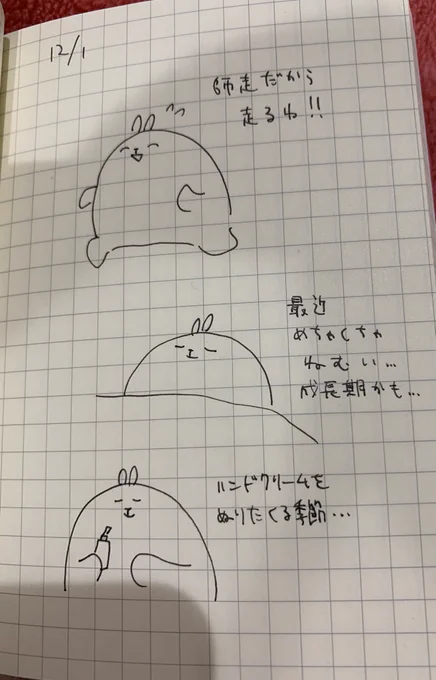 12/1
師走だから
走るわ!!
最近
めちゃくちゃ
ねむい...
成長期かも...
ハンドクリームを
ぬりたくる季節...